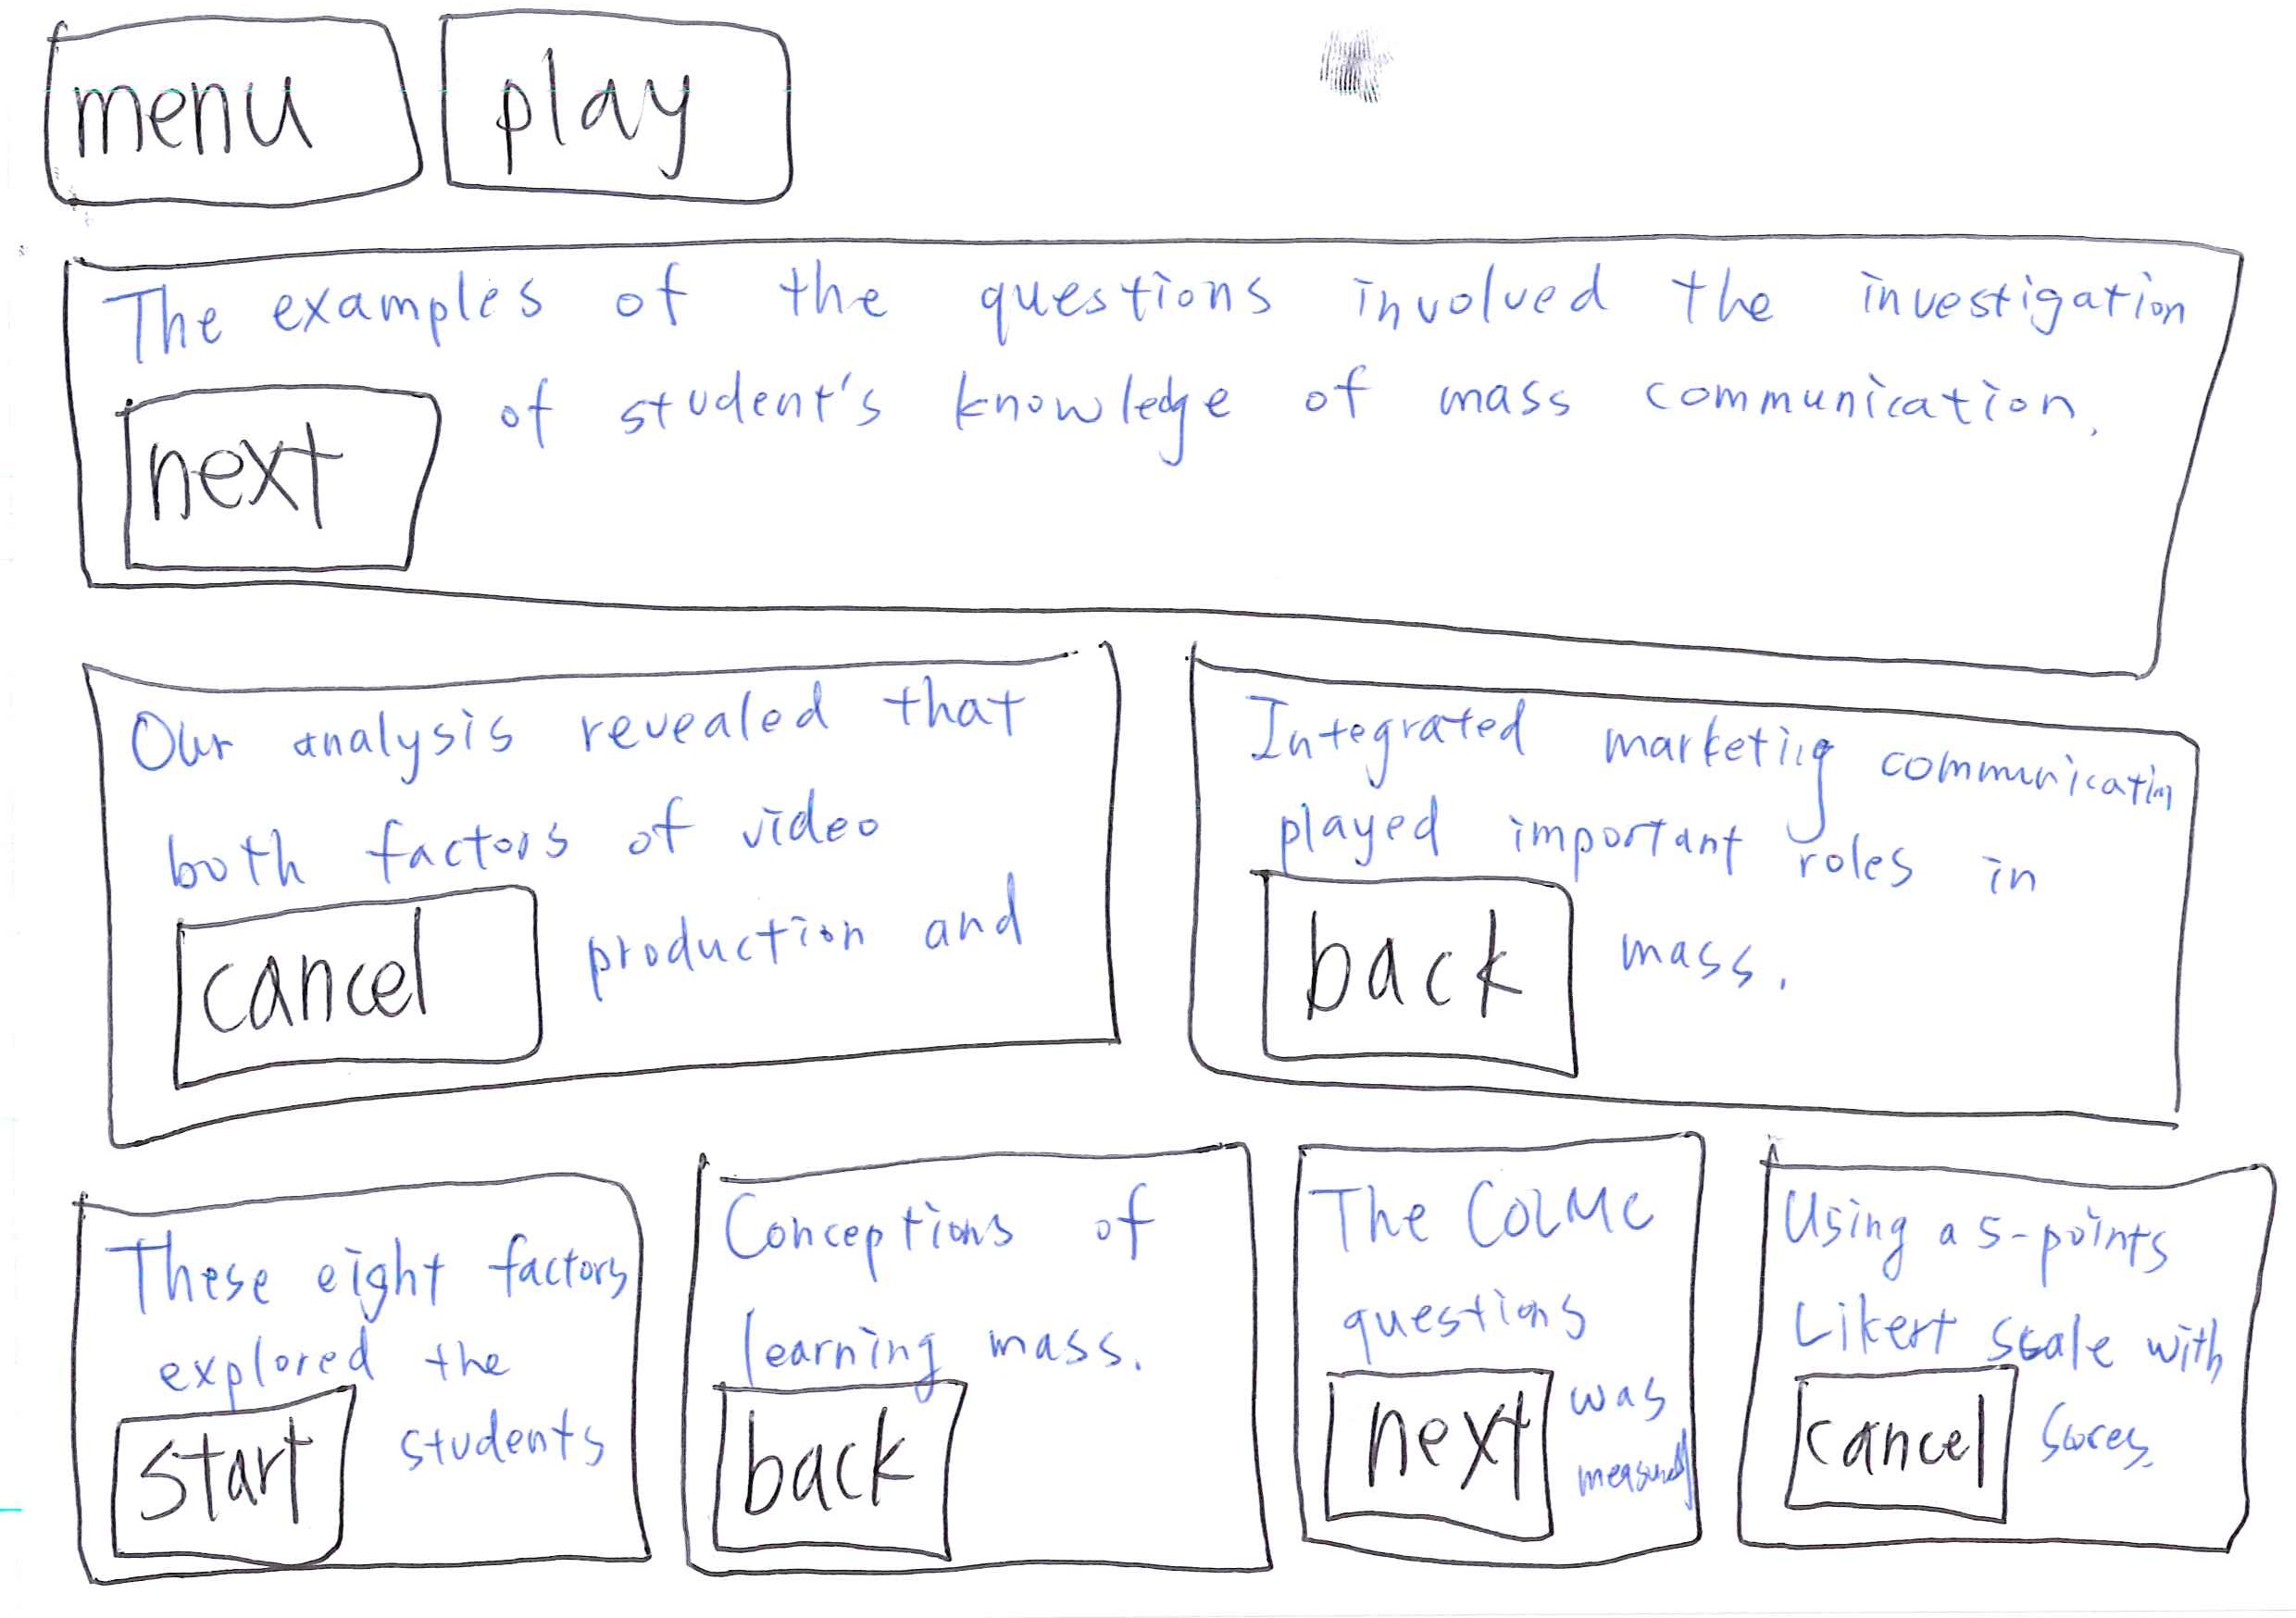 menu play
The examples of the questions involved the investigation
of student's knowledge of mass communication.
next
Our analysis revealed that
both factors of video
production and
cancel
Integrated marketing communication
played important roles in
mass.
back
These eight factors
explored the
students
start
Conceptions of
learning mass.
back
The COLMC
questions
was
measured
next
Using a 5-points
Likert scale with
scores.
cancel